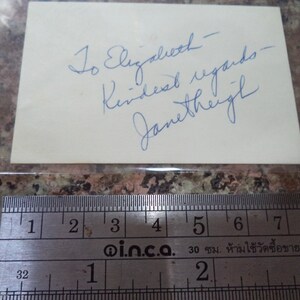 To Elizabeth –
Kindest regards –
Janet Leigh
1 2 3 4 5 6 7
inca. 30 ซม. ห้ามใช้วัดซื้อขาย
32 1 2